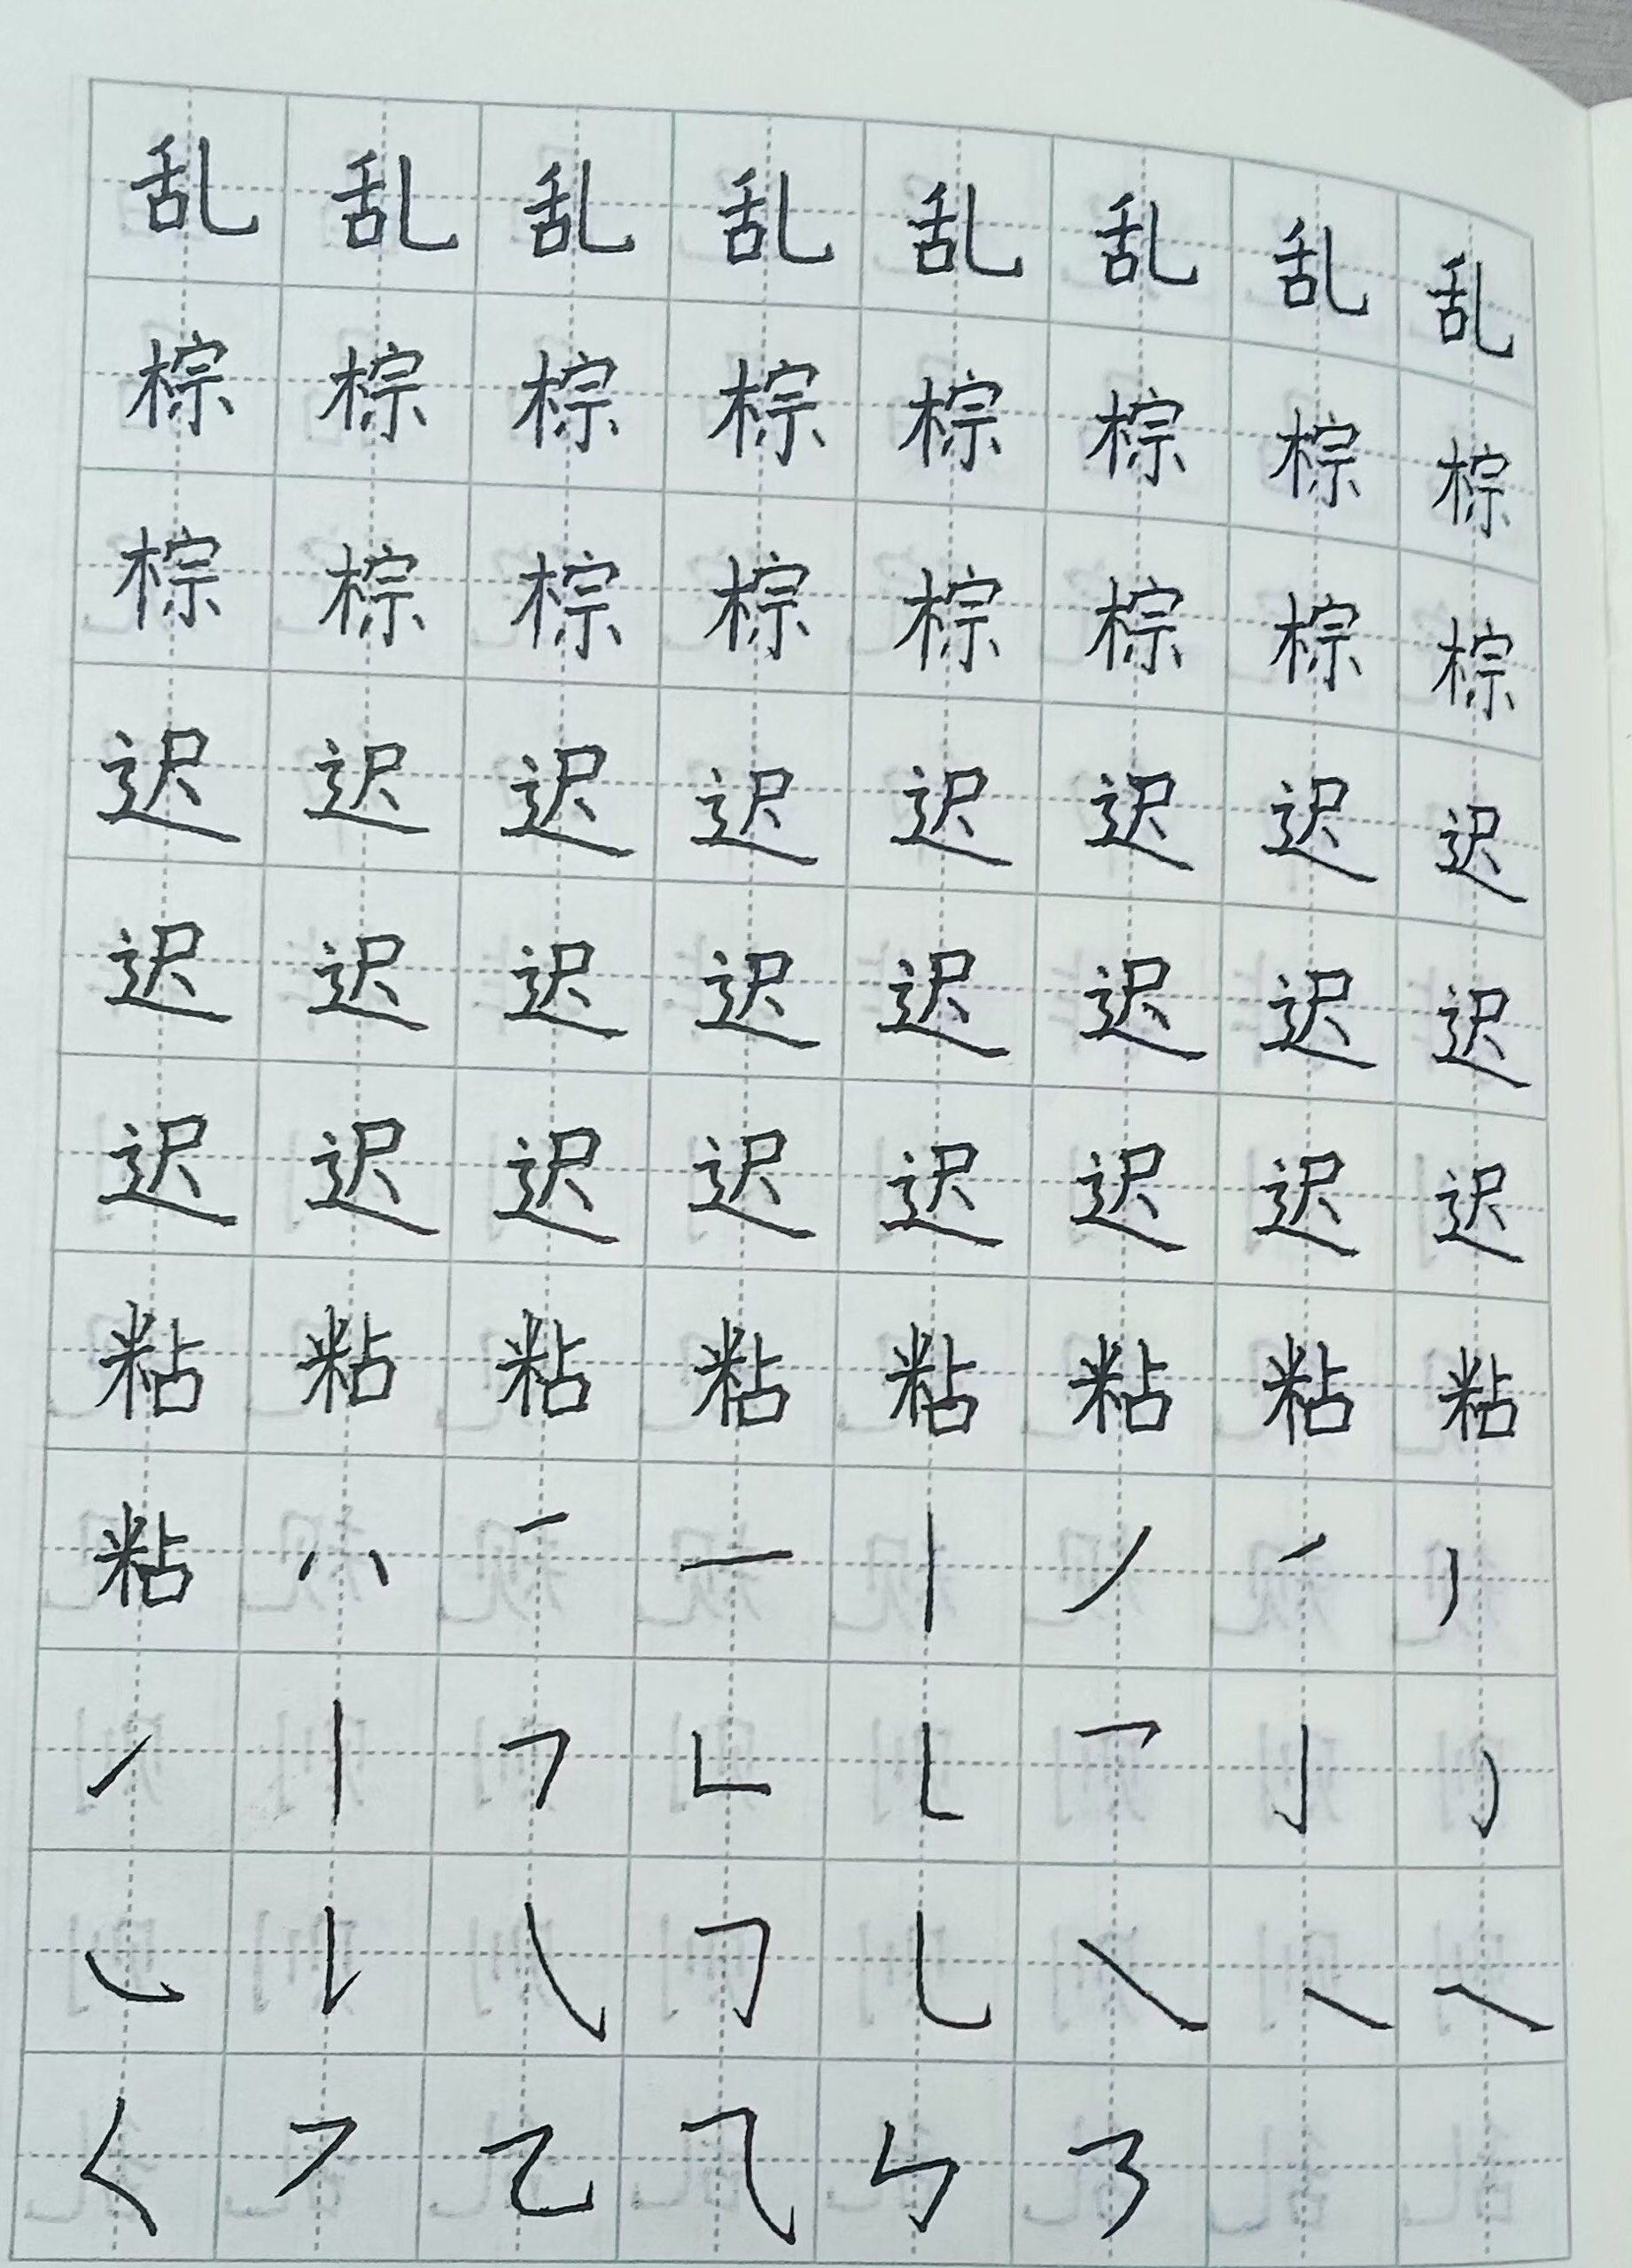 乱乱乱乱乱乱乱乱
棕棕棕棕棕棕棕棕
棕棕棕棕棕棕棕棕
迟迟迟迟迟迟迟迟
迟迟迟迟迟迟迟迟
迟迟迟迟迟迟迟迟
粘粘粘粘粘粘粘粘
粘